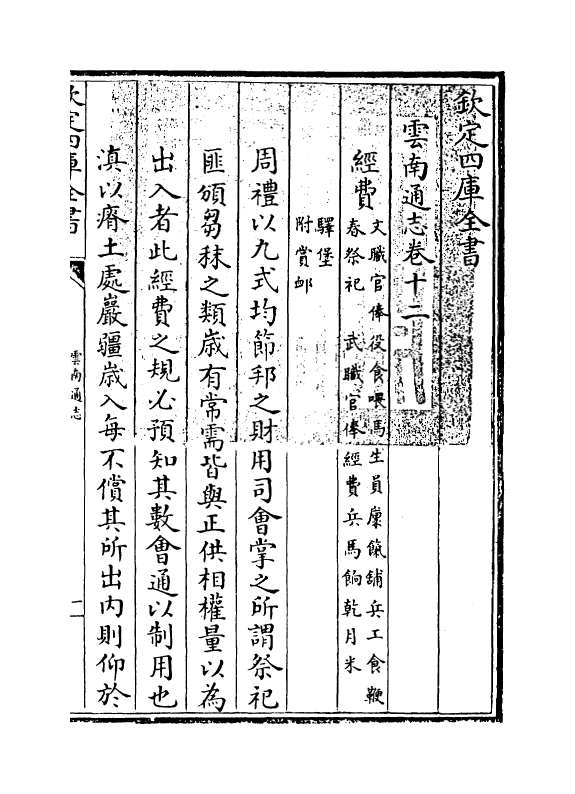 欽定四庫全書
雲南通志卷十二
經費
文職官俸役食喂馬生員廩餼舖兵工食鞭
春祭祀 武職官俸經費兵馬餉乾月米
驛堡
附賞䘏
周禮以九式均節邦之財用司會掌之所謂祭祀
匪頒芻秣之類歲有常需皆與正供相權量以為
出入者此經費之規必預知其數會通以制用也
滇以瘠土處巖疆歲入每不償其所出内則仰於
欽定四庫全書
雲南通志